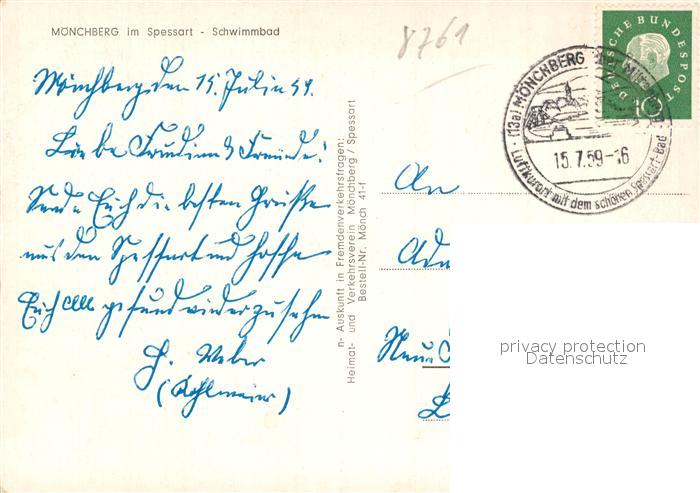 MÖNCHBERG im Spessart - Schwimmbad
8761
Mönchberg den 15. Julie 59.
Liebe Freundin & Freunde!
Sende Euch die besten Grüße
aus den Spessart und hoffe
Euch alle gesund wieder zu sehn
H. Weber
n- Auskunft in Fremdenverkehrsfragen:
Heimat- und Verkehrsverein Mönchberg / Spessart
Bestell-Nr. Mönch 41-f
DEUTSCHE BUNDESPOST
10
(13a) MÖNCHBERG
15.7.59-16
Luftkurort mit dem schönen Spessart-Bad
An
Neue
privacy protection
Datenschutz